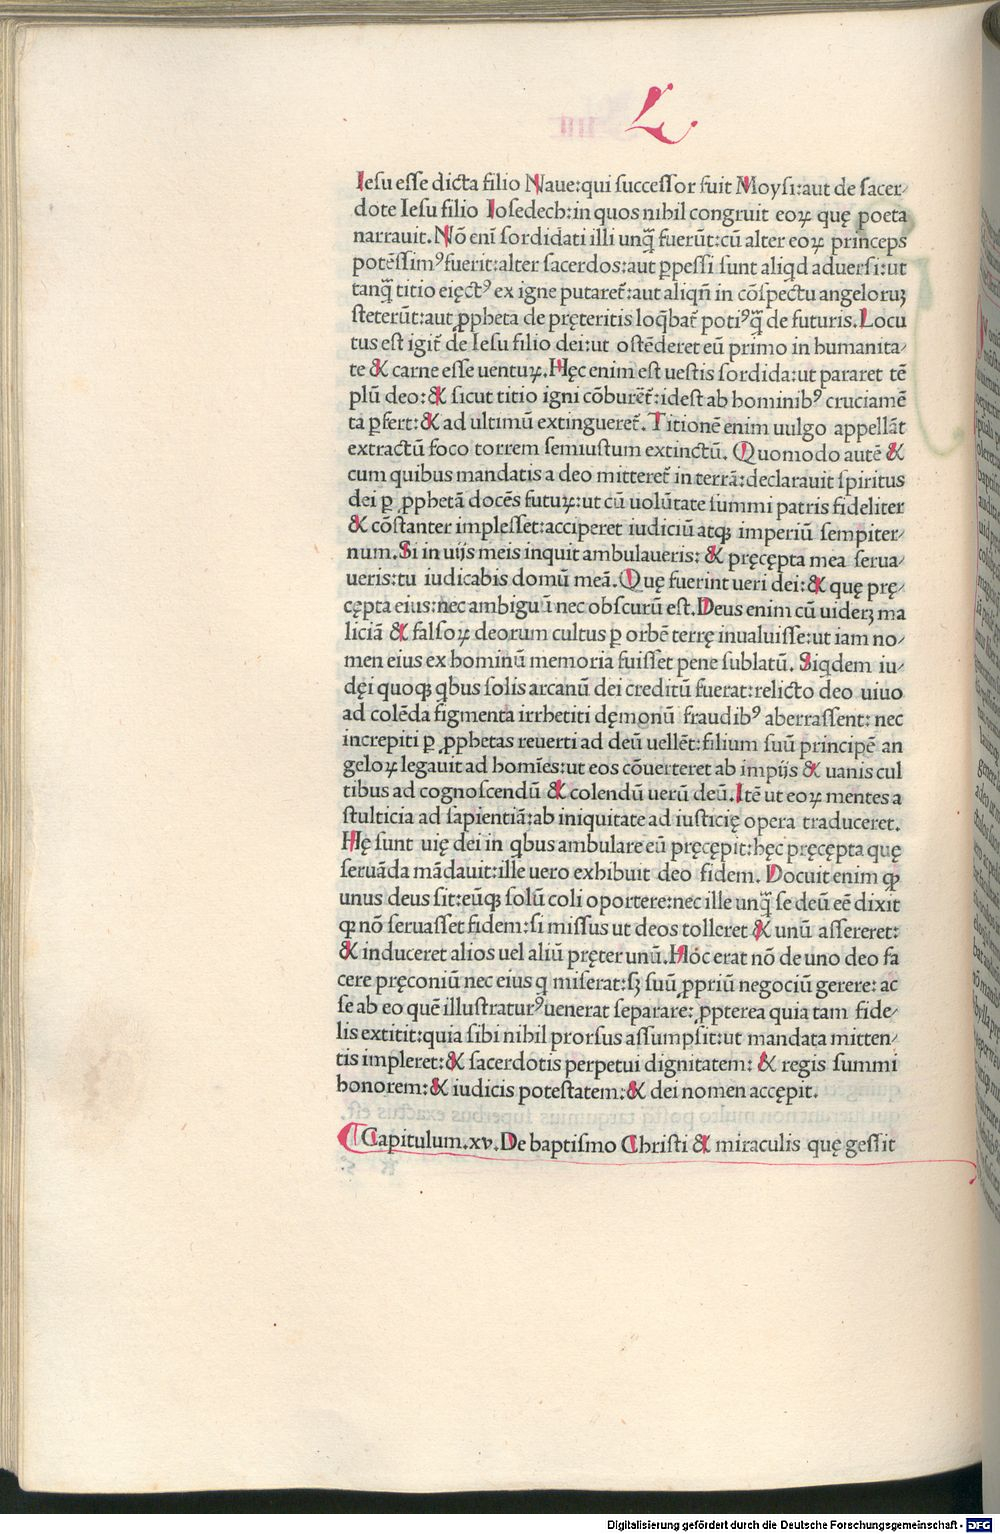 L
Iesu esse dicta filio Naue:qui successor fuit Moysi:aut de sacer⸗
dote Iesu filio Iosedech:in quos nihil congruit eoꝝ quę poeta
narrauit.Nō enī sordidati illi unq̃ fuerūt:cū alter eoꝝ princeps
potēssimꝰ fuerit:alter sacerdos:aut ꝑpessi sunt aliqd aduersi:ut
tanq̃ titio eięctꝰ ex igne putaret̃:aut aliqñ in cōspectu angeloruꝫ
steterūt:aut ꝓpheta de pręteritis loq̄bat̃ potiꝰq̃ de futuris.Locu
tus est igit̃ de Iesu filio dei:ut ostēderet eū primo in humanita⸗
te & carne esse uentuꝝ.Hęc enim est uestis sordida:ut pararet tē
plū deo:& sicut titio igni cōburēt̃:idest ab hominibꝰ cruciamē
ta ꝑfert:& ad ultimū extingueret̃.Titionē enim uulgo appellāt
extractū foco torrem semiustum extinctū. Quomodo autē &
cum quibus mandatis a deo mitteret̃ in terrā:declarauit spiritus
dei ꝑ ꝓphetā docēs futuꝝ:ut cū uolūtate summi patris fideliter
& cōstanter implesset:acciperet iudiciū atqꝫ imperiū sempiter⸗
num.Si in uijs meis inquit ambulaueris: & pręcępta mea serua⸗
ueris:tu iudicabis domū meā.Quę fuerint ueri dei:& quę prę⸗
cępta eius:nec ambiguū nec obscurū est.Deus enim cū uiderꝫ ma
liciā & falsoꝝ deorum cultus ꝑ orbē terrę inualuisse:ut iam no⸗
men eius ex hominū memoria fuisset pene sublatū. Siqdem iu⸗
dęi quoqꝫ qbus solis arcanū dei creditū fuerat:relicto deo uiuo
ad colēda figmenta irrhetiti dęmonū fraudibꝰ aberrassent: nec
increpiti ꝑ ꝓphetas reuerti ad deū uellēt:filium suū principē an
geloꝝ legauit ad homīes:ut eos cōuerteret ab impijs & uanis cul
tibus ad cognoscendū & colendū uerū deū.Itē ut eoꝝ mentes a
stulticia ad sapientiā:ab iniquitate ad iusticię opera traduceret.
Hę sunt uię dei in qbus ambulare eū pręcępit:hęc pręcępta quę
seruāda mādauit:ille uero exhibuit deo fidem. Docuit enim ꝙ
unus deus sit:eūqꝫ solū coli oportere:nec ille unq̃ se deū eē dixit
ꝙ nō seruasset fidem:si missus ut deos tolleret & unū assereret:
& induceret alios uel aliū pręter unū.Hoc erat nō de uno deo fa
cere pręconiū nec eius q miserat:sꝫ suū ꝓpriū negociū gerere: ac
se ab eo quē illustraturꝰ uenerat separare: ꝓpterea quia tam fide⸗
lis extitit:quia sibi nihil prorsus assumpsit:ut mandata mitten⸗
tis impleret:& sacerdotis perpetui dignitatem: & regis summi
honorem:& iudicis potestatem:& dei nomen accępit.
Capitulum.xv.De baptismo Christi & miraculis quę gessit
Digitalisierung gefördert durch die Deutsche Forschungsgemeinschaft - DFG